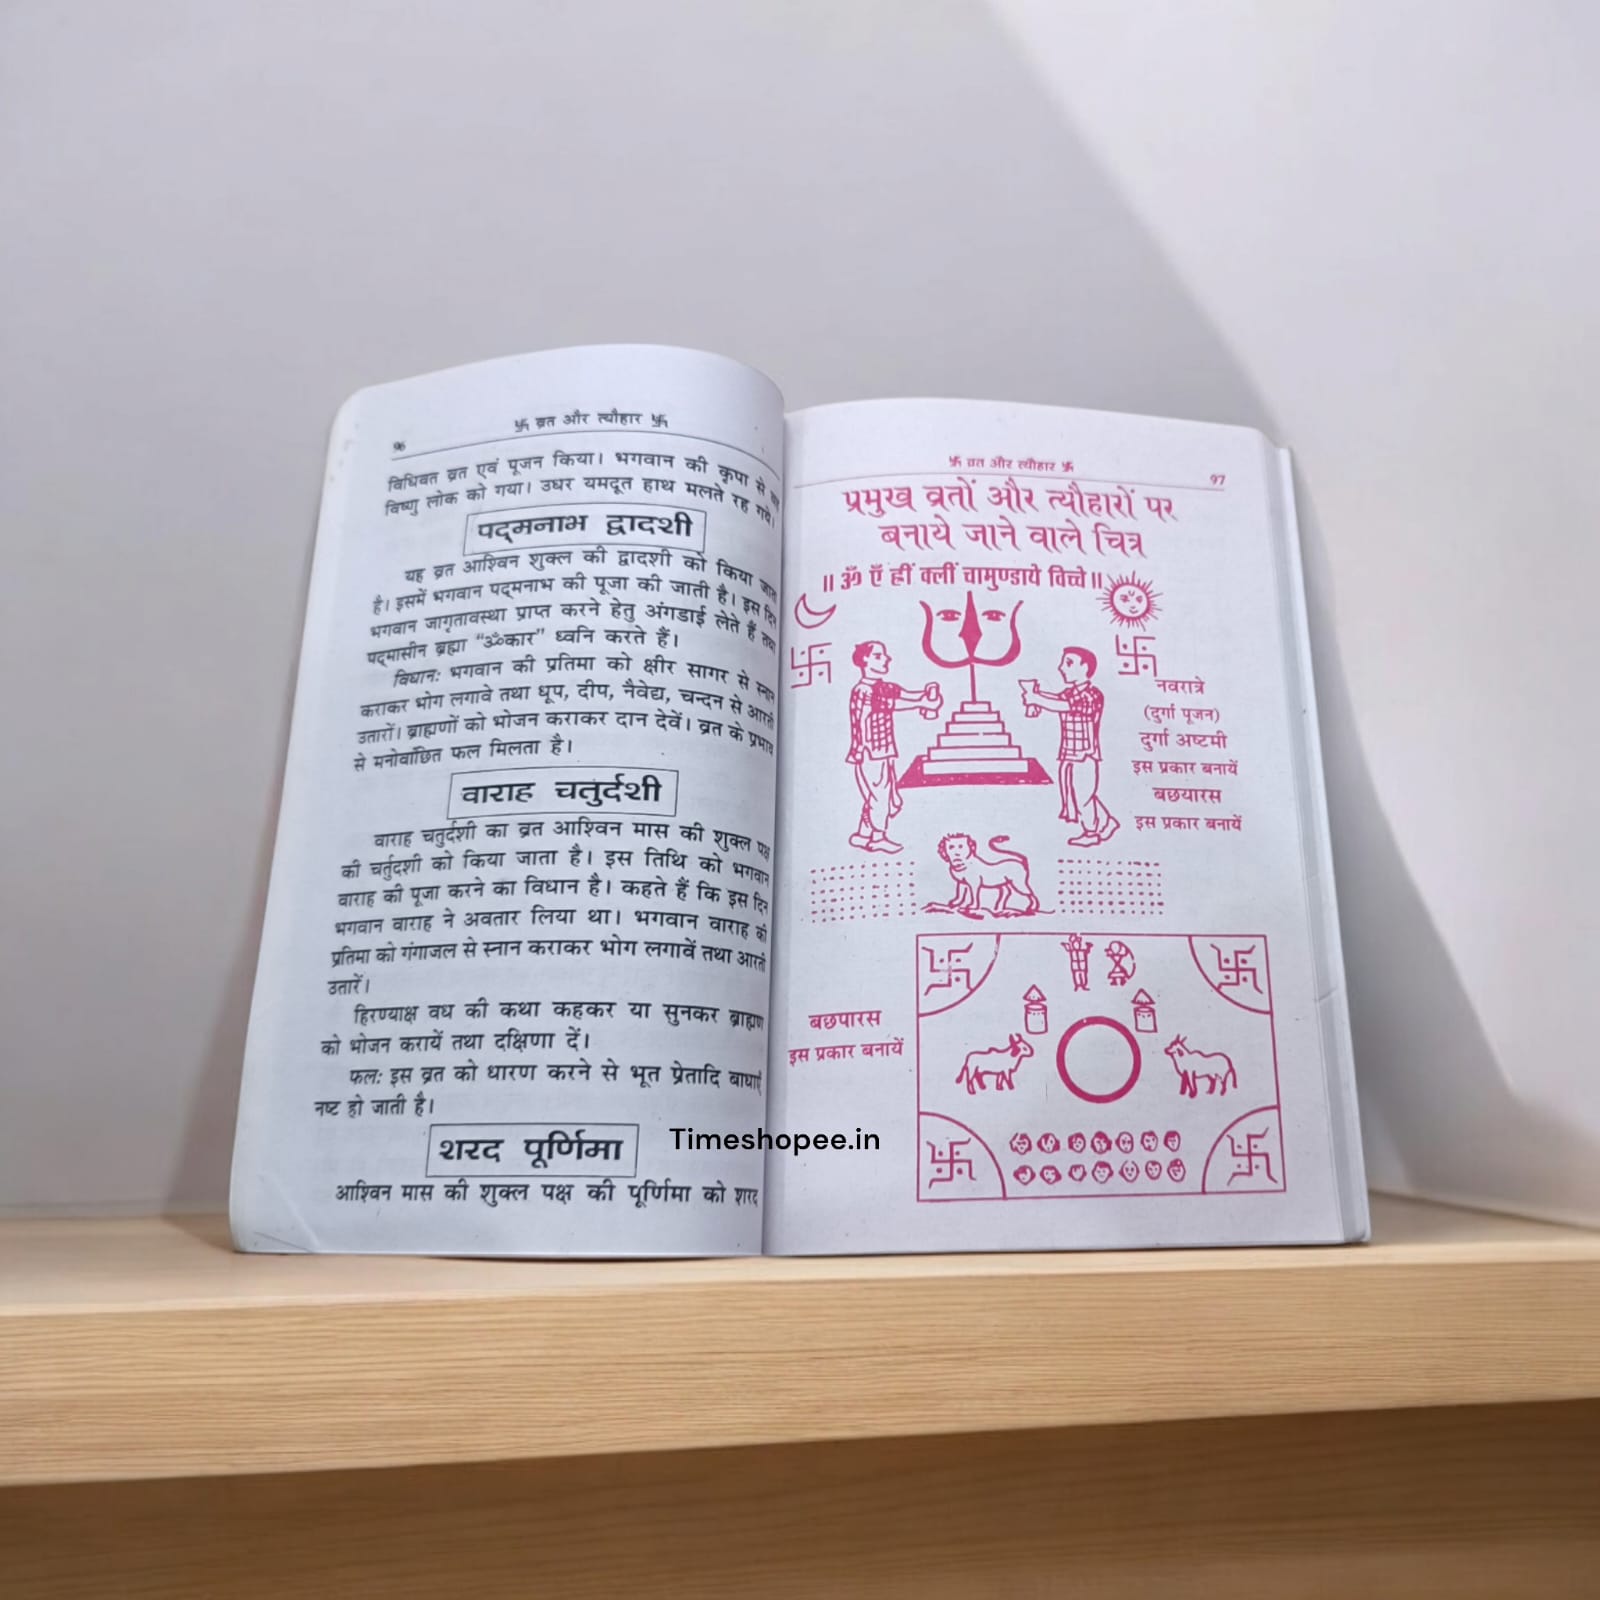 96
卐 व्रत और त्यौहार 卐
विधिवत व्रत एवं पूजन किया। भगवान की कृपा से वह
विष्णु लोक को गया। उधर यमदूत हाथ मलते रह गये।
पद्मनाभ द्वादशी
यह व्रत आश्विन शुक्ल की द्वादशी को किया जाता
है। इसमें भगवान पद्मनाभ की पूजा की जाती है। इस दिन
भगवान जागृतावस्था प्राप्त करने हेतु अंगडाई लेते हैं तथा
पद्मासीन ब्रह्मा “ॐकार” ध्वनि करते हैं।
विधानः भगवान की प्रतिमा को क्षीर सागर से स्नान
कराकर भोग लगावे तथा धूप, दीप, नैवेद्य, चन्दन से आरती
उतारों। ब्राह्मणों को भोजन कराकर दान देवें। व्रत के प्रभाव
से मनोवांछित फल मिलता है।
वाराह चतुर्दशी
वाराह चतुर्दशी का व्रत आश्विन मास की शुक्ल पक्ष
की चर्तुदशी को किया जाता है। इस तिथि को भगवान
वाराह की पूजा करने का विधान है। कहते हैं कि इस दिन
भगवान वाराह ने अवतार लिया था। भगवान वाराह की
प्रतिमा को गंगाजल से स्नान कराकर भोग लगावें तथा आरती
उतारें।
हिरण्याक्ष वध की कथा कहकर या सुनकर ब्राह्मण
को भोजन करायें तथा दक्षिणा दें।
फलः इस व्रत को धारण करने से भूत प्रेतादि बाधाएँ
नष्ट हो जाती है।
शरद पूर्णिमा
आश्विन मास की शुक्ल पक्ष की पूर्णिमा को शरद
Timeshopee.in
卐 व्रत और त्यौहार 卐
97
प्रमुख व्रतों और त्यौहारों पर
बनाये जाने वाले चित्र
॥ ॐ एँ ह्रीं क्लीं चामुण्डाये विच्चे ॥
नवरात्रे
(दुर्गा पूजन)
दुर्गा अष्टमी
इस प्रकार बनायें
बछयारस
इस प्रकार बनायें
बछपारस
इस प्रकार बनायें